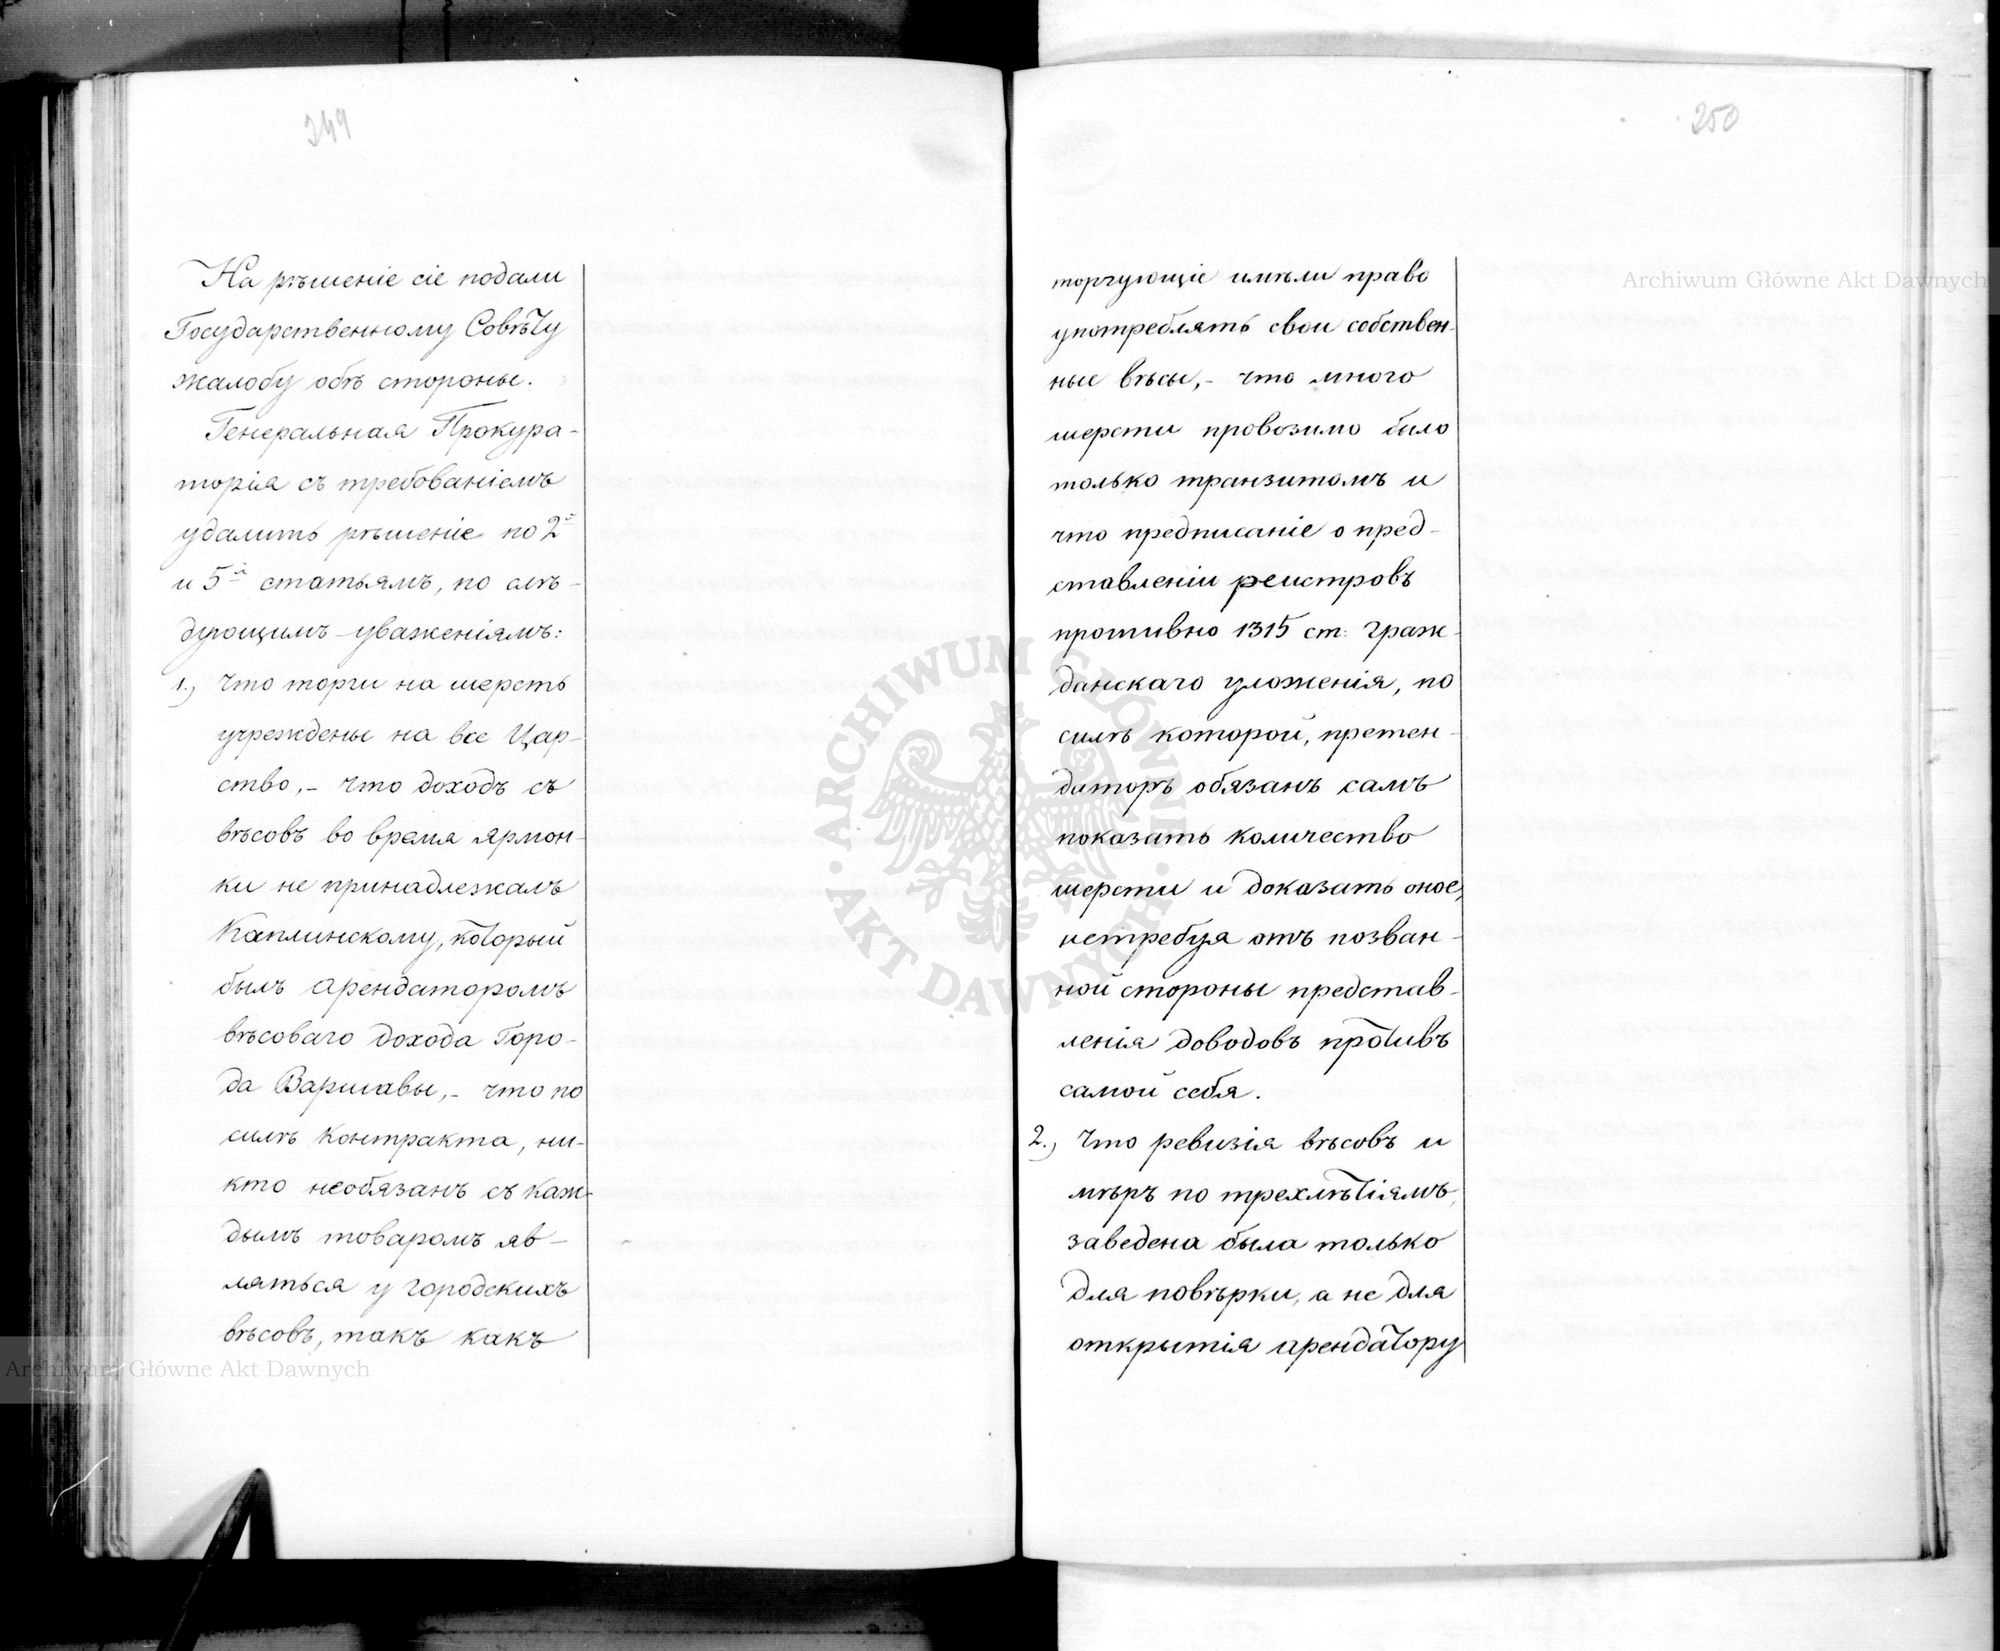 349
На рѣшеніе сіе подали
Государственному Совѣту
жалобу обѣ стороны.
Генеральная Прокура-
торія съ требованіемъ
удалить рѣшеніе по 2й
и 5й статьямъ, по слѣ-
дующимъ уваженіямъ:
1., Что торги на шерсть
учреждены на все Цар-
ство, - что доходъ съ
вѣсовъ во время ярмон-
ки не принадлежалъ
Каплинскому, который
былъ арендаторомъ
вѣсоваго дохода Горо-
да Варшавы, - что по
силѣ Контракта, ни-
кто необязанъ съ каж-
дымъ товаромъ яв-
ляться у городскихъ
вѣсовъ, такъ какъ
250
торгующіе имѣли право
употреблять свои собствен-
ные вѣсы, - что много
шерсти провозимо было
только транзитомъ и
что предписаніе о пред-
ставленіи реистровъ
противно 1315 ст: граж-
данскаго уложенія, по
силѣ которой, претен-
даторъ обязанъ самъ
показать количество
шерсти и доказать оное,
нетребуя отъ позван-
ной стороны представ-
ленія доводовъ противъ
самой себя.
2., Что ревизія вѣсовъ и
мѣръ по трехлѣтіямъ,
заведена была только
для повѣрки, а не для
открытія арендатору
Archiwum Główne Akt Dawnych
Archiwum Główne Akt Dawnych
ARCHIWUM GŁÓWNE AKT DAWNYCH